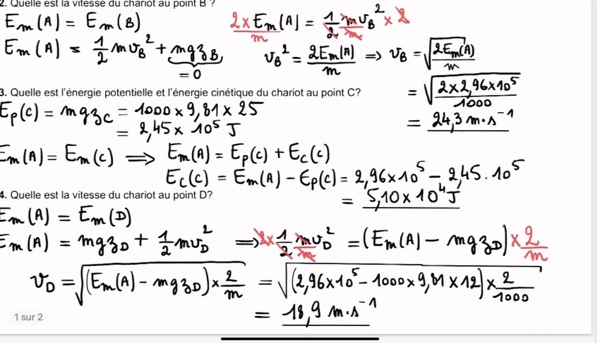 2. Quelle est la vitesse du chariot au point B ?
Em(A) = Em(B)
2× Em(A) = 1/2 m v_B² × 2
m m
Em(A) = 1/2 m v_B² + mgz_B
= 0
v_B² = 2Em(A)/m ⇒ v_B = √(2Em(A)/m)
= √(2 × 2,96×10⁵/1000)
= 24,3 m·s⁻¹
3. Quelle est l'énergie potentielle et l'énergie cinétique du chariot au point C?
Ep(C) = mgz_C = 1000 × 9,81 × 25
= 2,45 × 10⁵ J
Em(A) = Em(C) ⇒ Em(A) = Ep(C) + Ec(C)
Ec(C) = Em(A) − Ep(C) = 2,96×10⁵ − 2,45·10⁵
= 5,10 × 10⁴ J
4. Quelle est la vitesse du chariot au point D?
Em(A) = Em(D)
Em(A) = mgz_D + 1/2 m v_D² ⇒ 2/m × 1/2 m v_D² = (Em(A) − mgz_D) × 2/m
v_D = √((Em(A) − mgz_D) × 2/m) = √((2,96×10⁵ − 1000×9,81×12) × 2/1000)
= 18,9 m·s⁻¹
1 sur 2